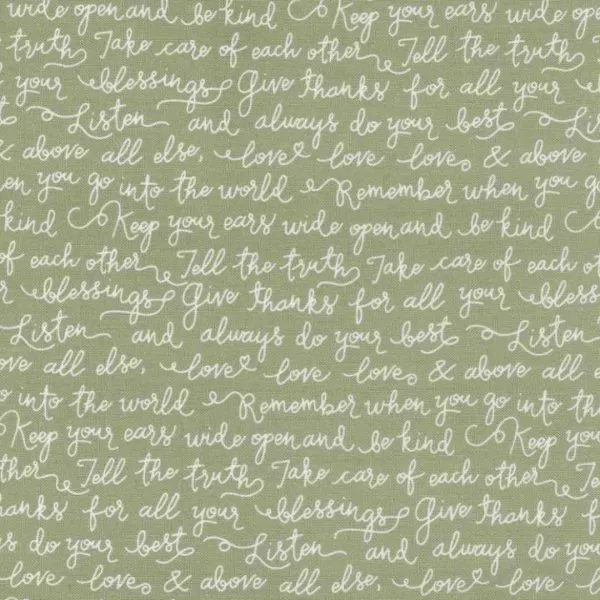 wide open and be kind Keep your ears wide open
truth Take care of each other Tell the truth
your blessings Give thanks for all your
Listen and always do your best Listen
& above all else, love love love & above
en you go into the world Remember when you go
kind Keep your ears wide open and be kind
of each other Tell the truth Take care of each oth
r blessings Give thanks for all your bless
Listen and always do your best Listen
ove all else, love love love & above all e
o into the world Remember when you go into th
Keep your ears wide open and be kind Keep your
ther Tell the truth Take care of each other Te
hanks for all your blessings Give thanks f
s do your best Listen and always do your
love love & above all else, love love